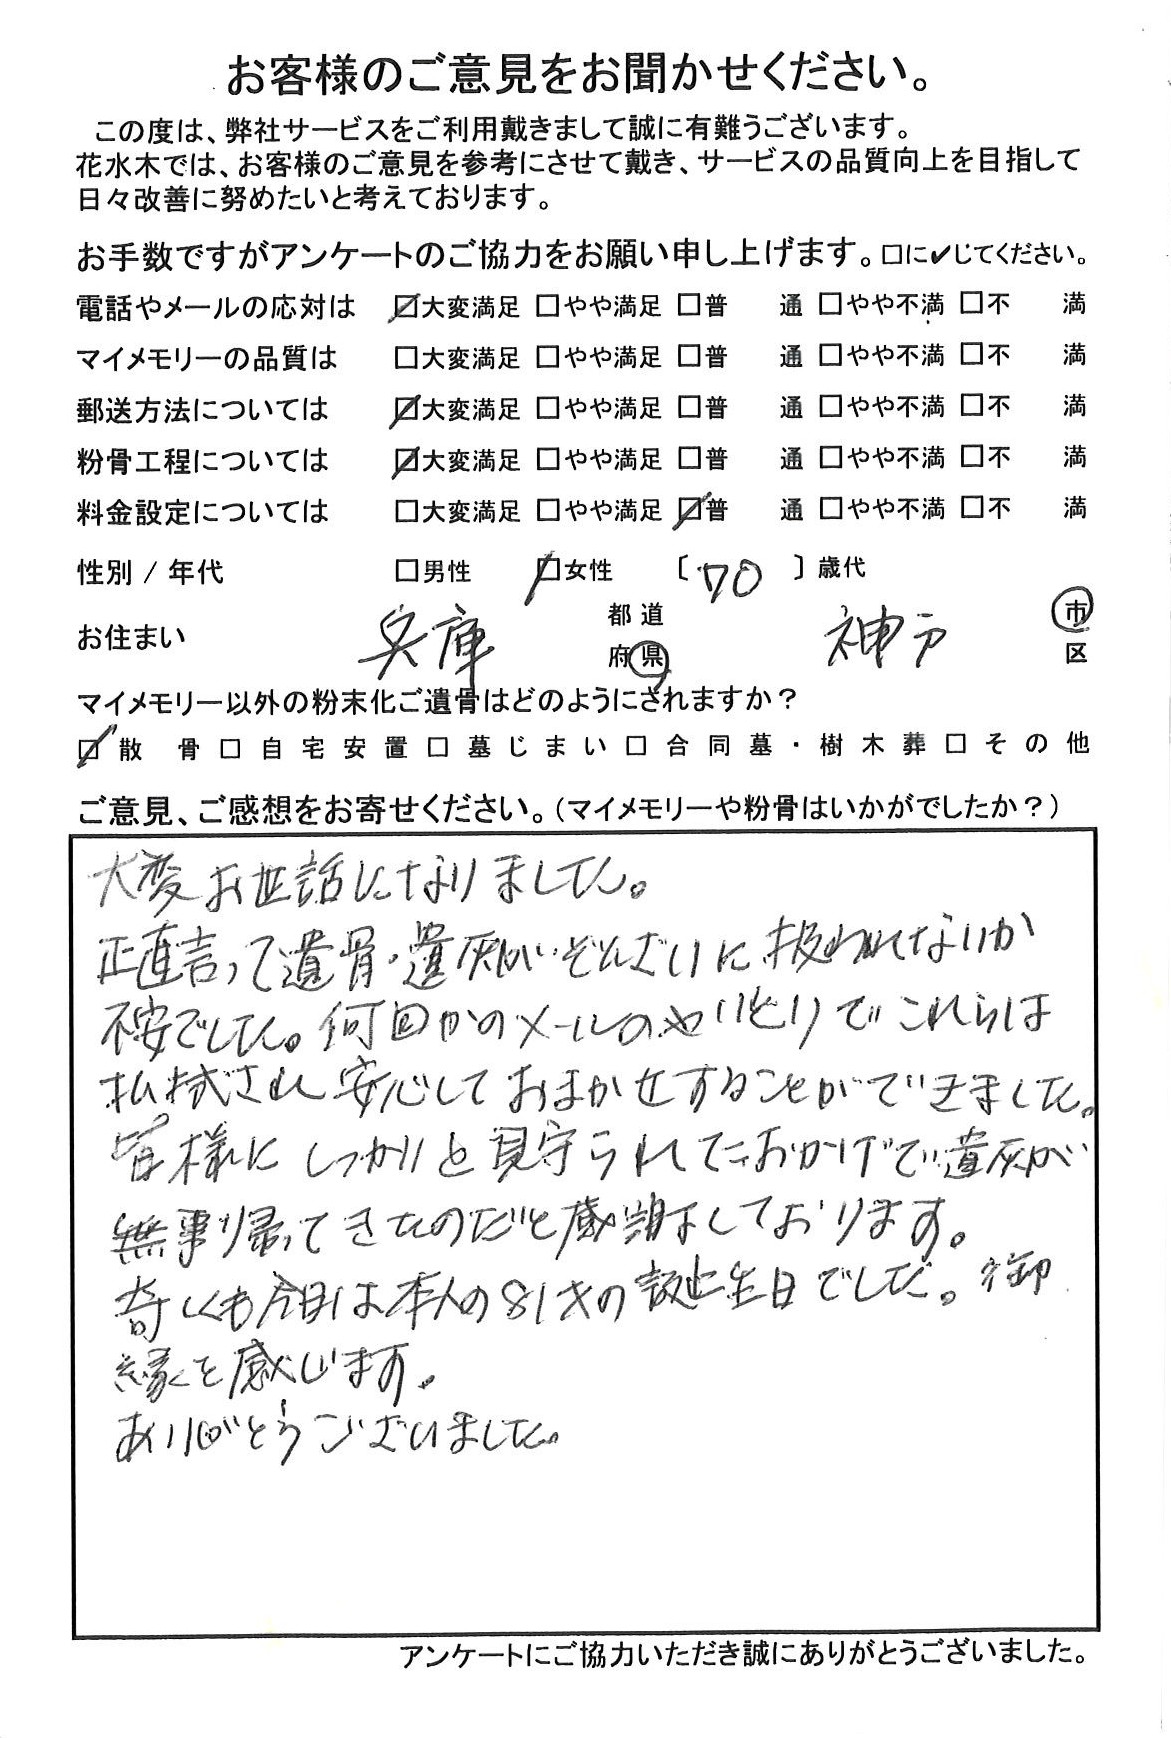 お客様のご意見をお聞かせください。
この度は、弊社サービスをご利用戴きまして誠に有難うございます。
花水木では、お客様のご意見を参考にさせて戴き、サービスの品質向上を目指して
日々改善に努めたいと考えております。
お手数ですがアンケートのご協力をお願い申し上げます。□に✔じてください。
電話やメールの応対は ☑大変満足 □やや満足 □普 通 □やや不満 □不 満
マイメモリーの品質は □大変満足 □やや満足 □普 通 □やや不満 □不 満
郵送方法については ☑大変満足 □やや満足 □普 通 □やや不満 □不 満
粉骨工程については ☑大変満足 □やや満足 □普 通 □やや不満 □不 満
料金設定については □大変満足 □やや満足 ☑普 通 □やや不満 □不 満
性別 / 年代 □男性 ☑女性 〔 70 〕歳代
お住まい 兵庫 都道府県 神戸 市区
マイメモリー以外の粉末化ご遺骨はどのようにされますか？
☑散 骨□自宅安置□墓じまい□合同墓・樹木葬□その他
ご意見、ご感想をお寄せください。（マイメモリーや粉骨はいかがでしたか？）
大変お世話になりました。
正直言って遺骨・遺灰がぞんざいに扱われないか
不安でした。何回かのメールのやりとりでこれらは
払拭され安心しておまかせすることができました。
皆様にしっかりと見守られておかげで遺灰が
無事帰ってきたのだと感謝しております。
奇しくも今日は本人の81才の誕生日でした。御
縁を感じます。
ありがとうございました。
アンケートにご協力いただき誠にありがとうございました。